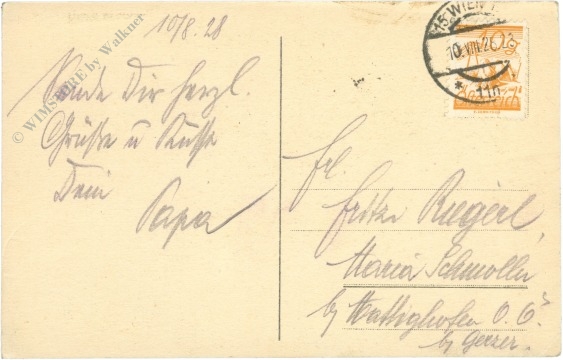 10/8. 28
Sende Dir herzl.
Grüße u Küsse
Dein
Papa
© WIMSTORE by Walkner
15·WIEN 1
10.VIII.28
* 11b
10g
Frl.
Fritzi Riegerl,
Maria Schmolln
by Mattighofen O. Ö.
by